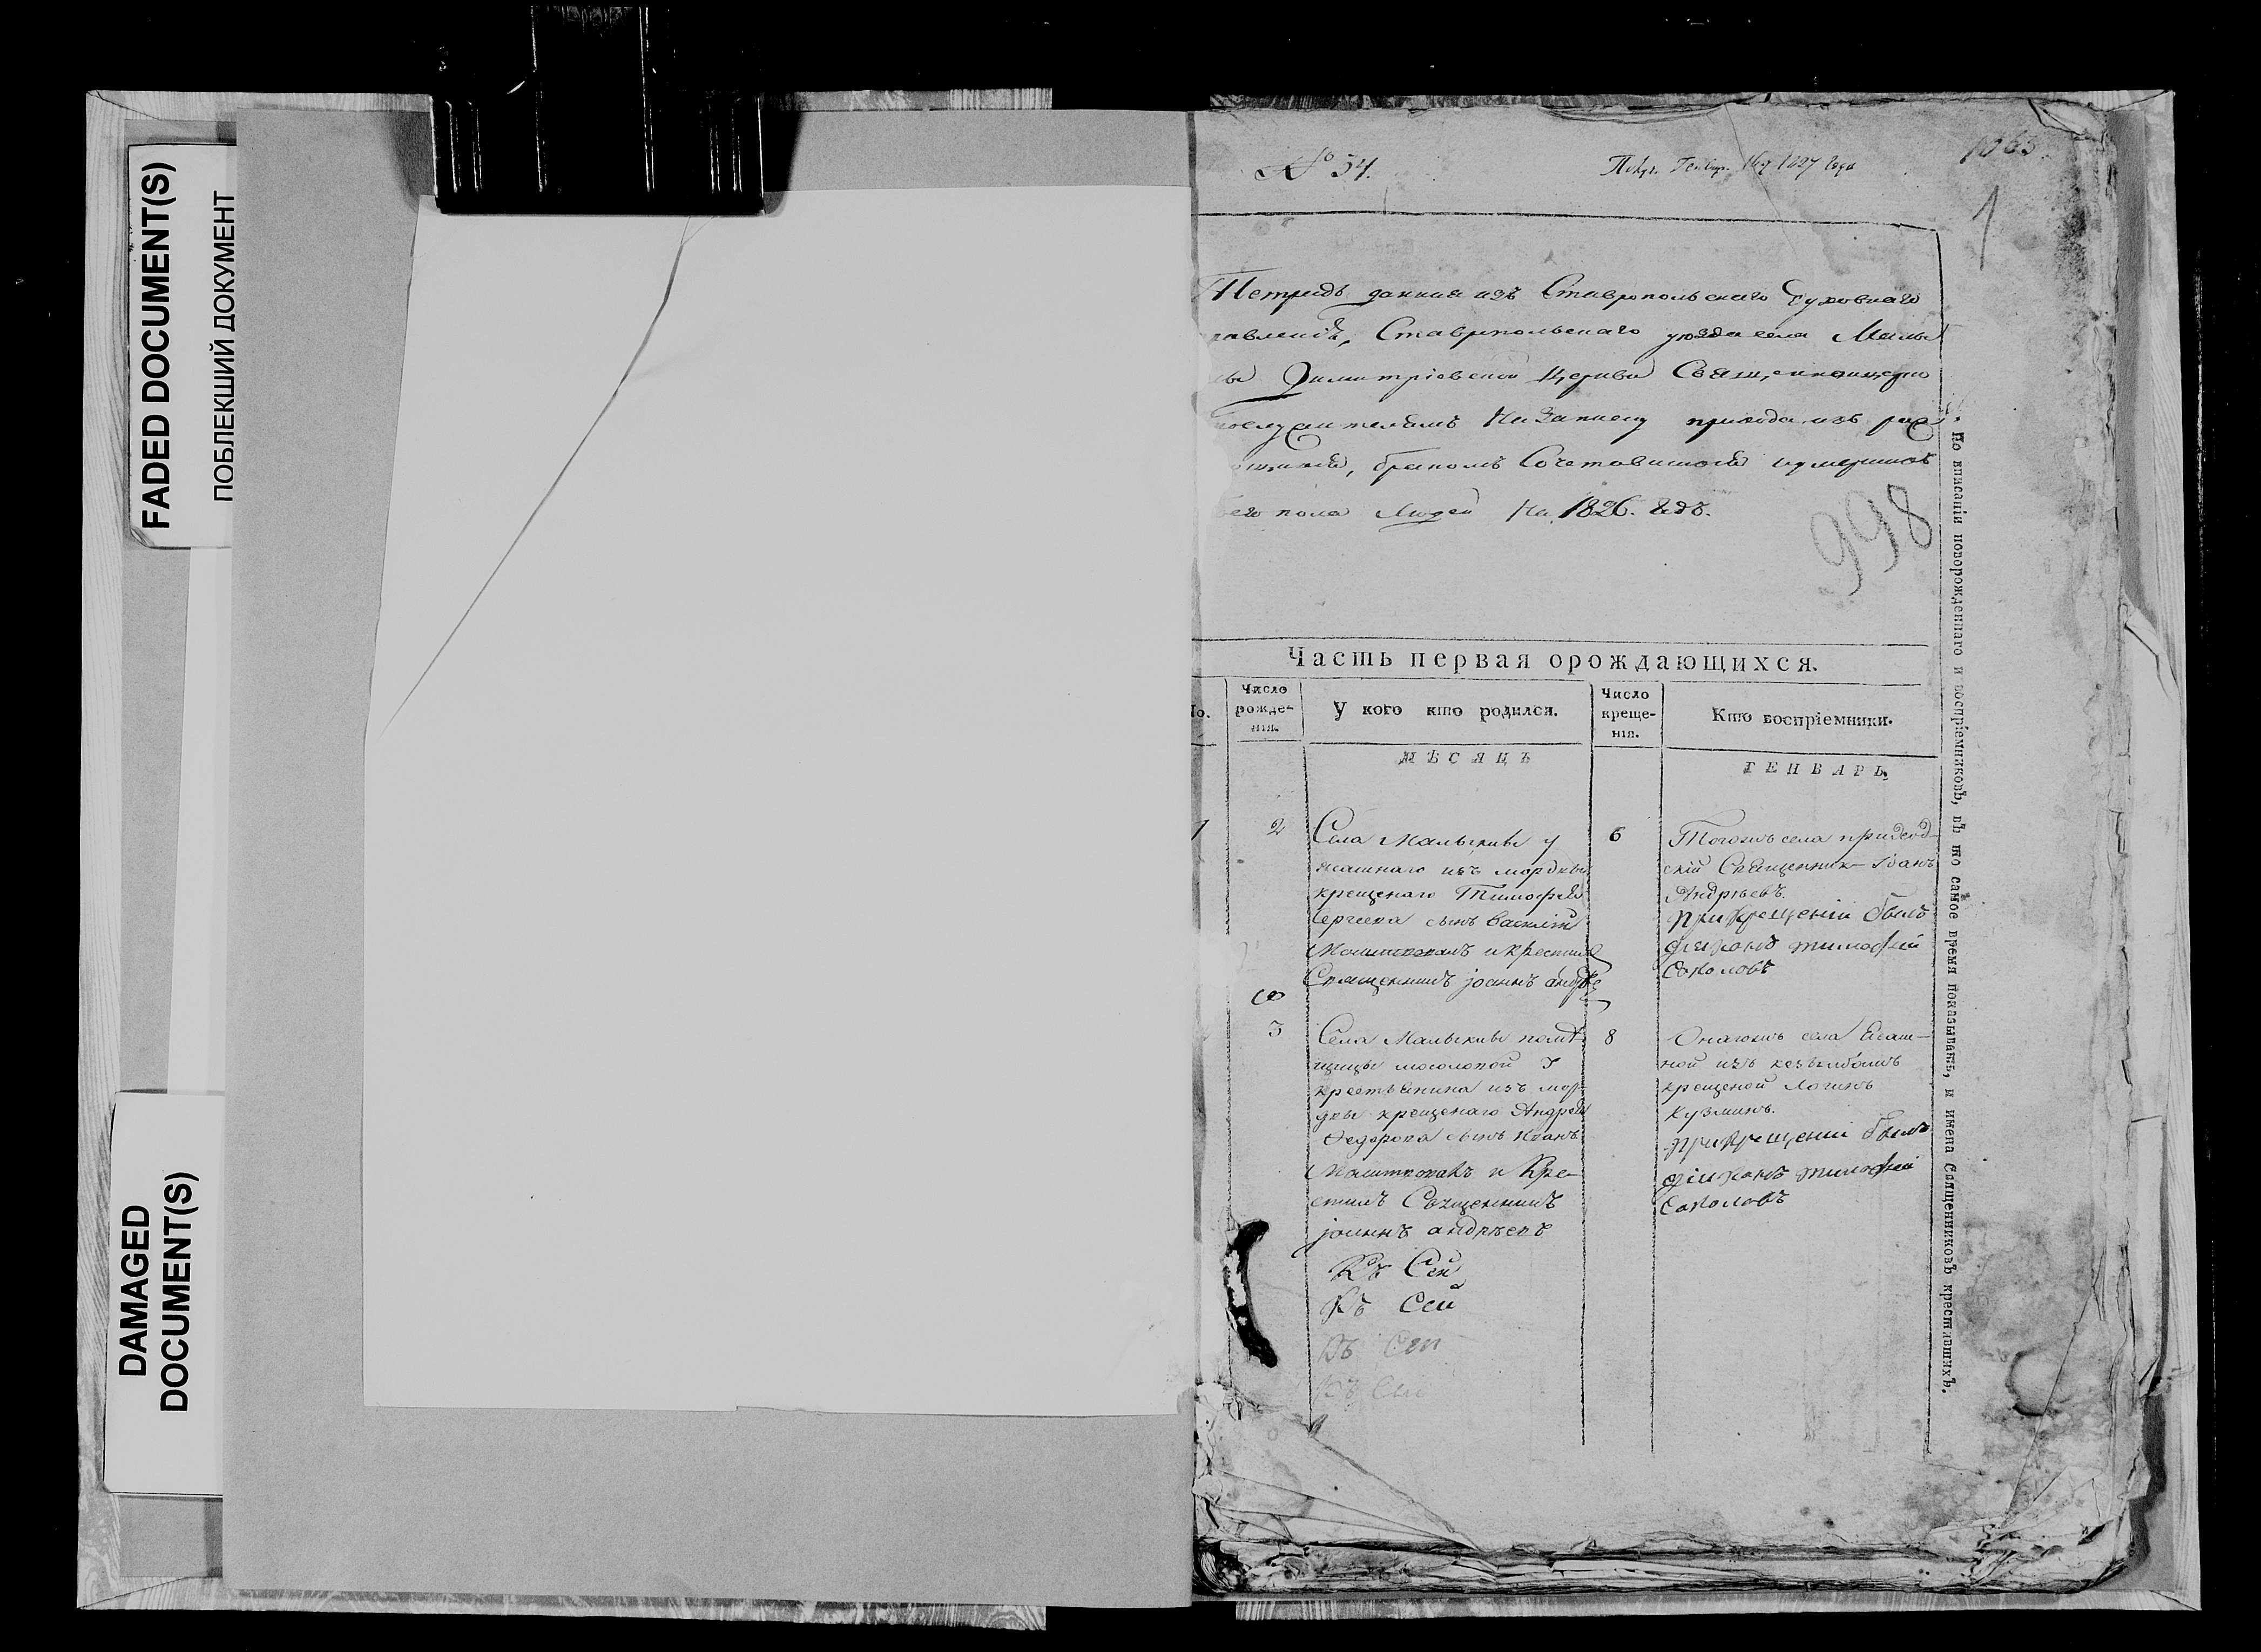 FADED DOCUMENT(S)
ПОБЛЕКШИЙ ДОКУМЕНТ
DAMAGED
DOCUMENT(S)
№ 54.
Генвр. 1827 года
1
Тетрадь данная изъ Ставропольскаго Духовнаго
равленія, Ставропольскаго уѣзда села Малы
Димитріевской Церкви Священноцерко
нослужителямъ На Записку прихода ихъ
браномъ Сочетавшихся
его пола Людей На 1826. годъ.
998
Часть первая орождающихся.
No.
Число
рожде-
нія.
У кого кто родился.
Число
креще-
нія.
Кто воспріемники.
МѢСЯЦЪ
ГЕНВАРЬ
1
2
Села Малыкивы у
ясашнаго изъ мордвы
крещенаго Тимофея
Сергеева сынъ Василій
Молитвовалъ и крестилъ
Священникъ іоаннъ андрѣе
6
Тогожъ села приход-
скій Священник Іоанъ
Андрѣевъ.
При Крещеніи былъ
діяконъ тимофей
Соколовъ
3
Села Малыкивы помѣ
щицы мосоловой у
крестьянина изъ мор-
двы крещенаго Андрея
Федорова сынъ Иванъ
Молитвовалъ и Кре-
стилъ Священникъ
іоаннъ андрѣевъ
8
Онагожъ села Ясаш-
ной изъ
крещеной Логинъ
Кузминъ.
При крещеніи былъ
діяконъ тимофей
Соколовъ
Къ Сей
Къ Сей
Къ Сей
Къ Сей
По вписаніи новорожденнаго и воспріемниковъ, въ то самое время показывать, и имена Священниковъ крестившихъ.